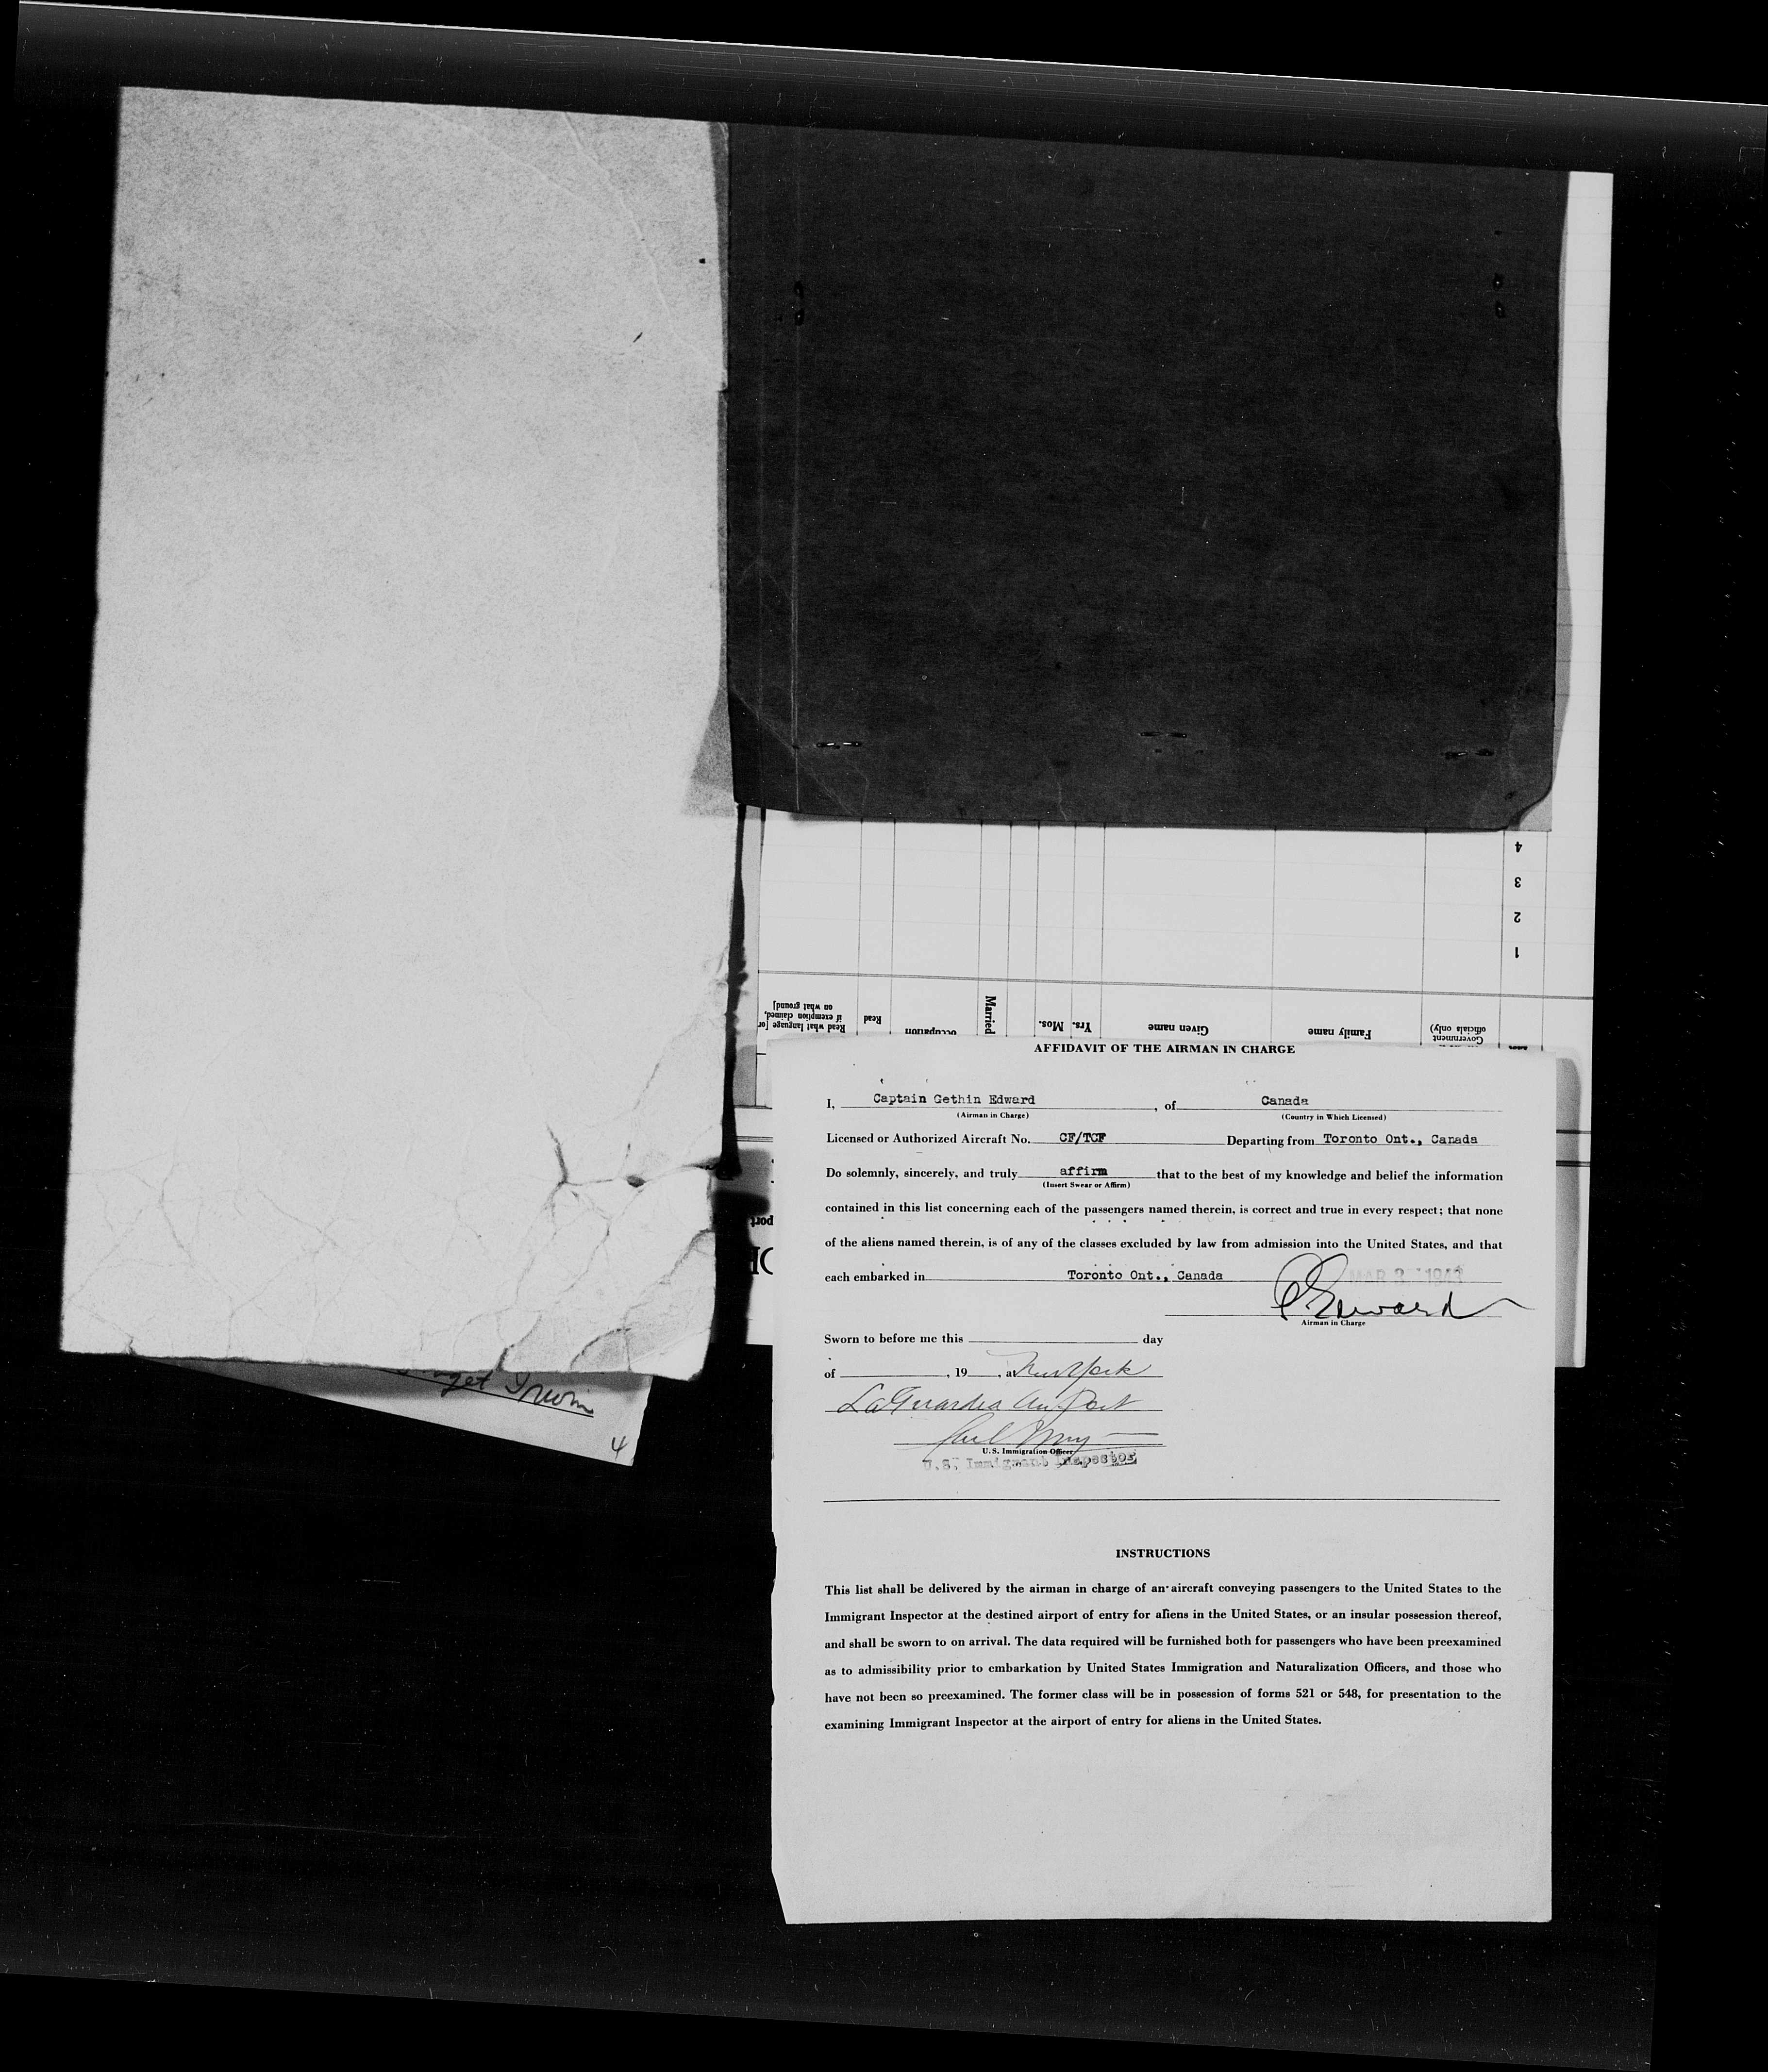 4
3
2
1
Read what language [or
if exemption claimed,
on what ground]
Read
Married
Mos.
Yrs.
Given name
Family name
Government
officials only)
AFFIDAVIT OF THE AIRMAN IN CHARGE
I, Captain Gethin Edward, of Canada
(Airman in Charge) (Country in Which Licensed)
Licensed or Authorized Aircraft No. CF/TCF Departing from Toronto Ont., Canada
Do solemnly, sincerely, and truly affirm that to the best of my knowledge and belief the information
(Insert Swear or Affirm)
contained in this list concerning each of the passengers named therein, is correct and true in every respect; that none
of the aliens named therein, is of any of the classes excluded by law from admission into the United States, and that
each embarked in Toronto Ont., Canada
Edward
Airman in Charge
Sworn to before me this day
of , 19 , at New York
LaGuardia Airport
U.S. Immigration Officer
U.S. Immigrant Inspector
Irwin
4
INSTRUCTIONS
This list shall be delivered by the airman in charge of an aircraft conveying passengers to the United States to the
Immigrant Inspector at the destined airport of entry for aliens in the United States, or an insular possession thereof,
and shall be sworn to on arrival. The data required will be furnished both for passengers who have been preexamined
as to admissibility prior to embarkation by United States Immigration and Naturalization Officers, and those who
have not been so preexamined. The former class will be in possession of forms 521 or 548, for presentation to the
examining Immigrant Inspector at the airport of entry for aliens in the United States.